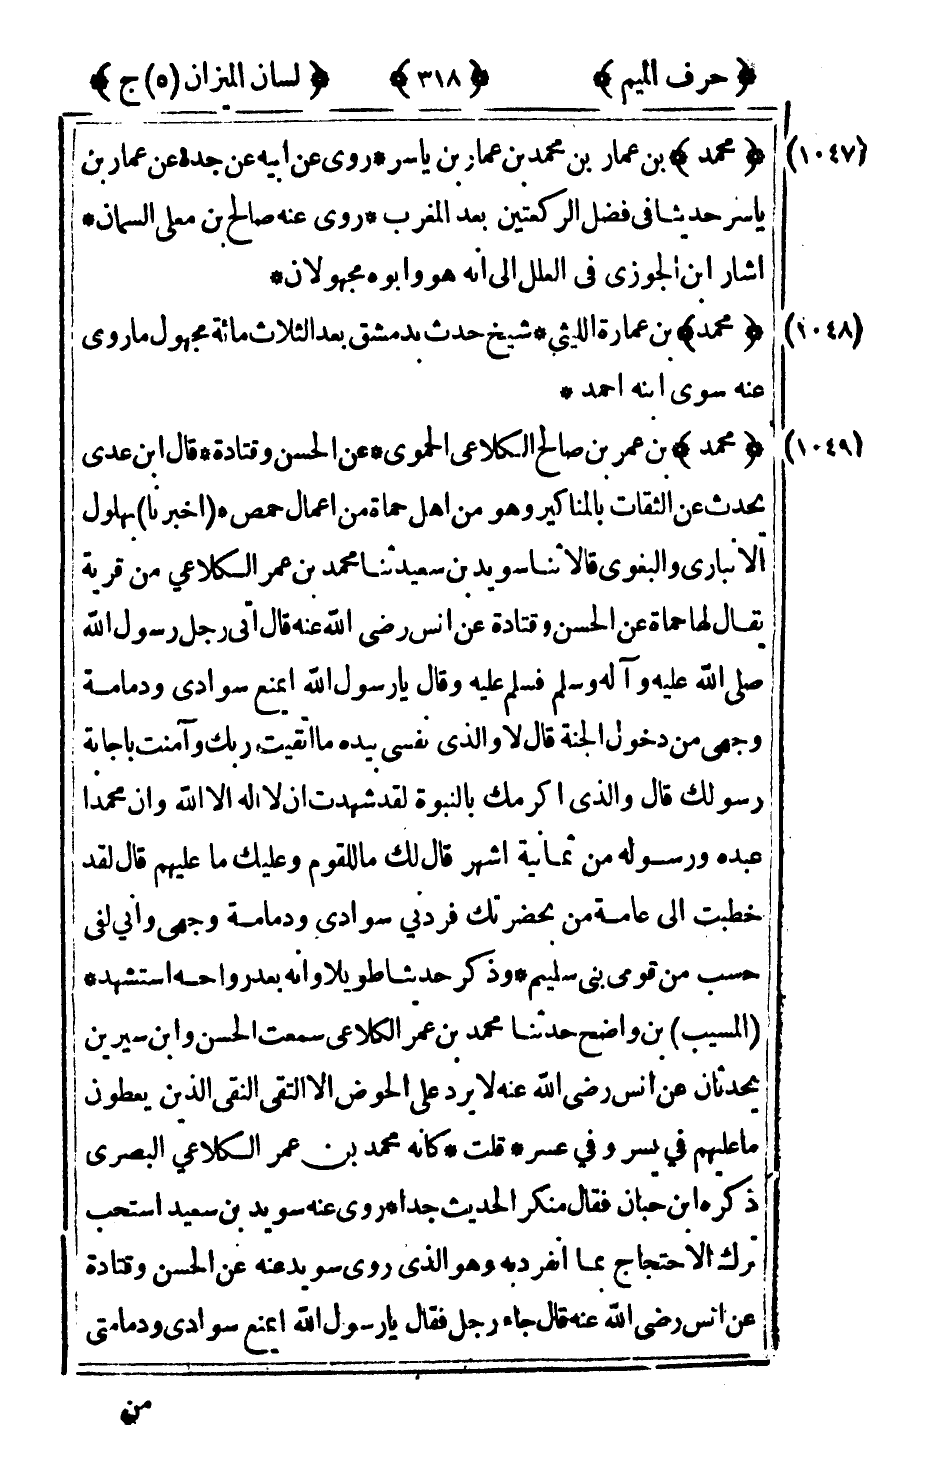 ﴿ حرف الميم ﴾ ﴿ ٣١٨ ﴾ ﴿ لسان الميزان (٥) ج ﴾
(١٠٤٧) ﴿ محمد ﴾ بن عمار بن محمد بن عمار بن ياسر * روى عن ابيه عن جده عن عمار بن
ياسر حديثا فى فضل الركعتين بعد المغرب * روى عنه صالح بن معلى السمان *
اشار ابن الجوزى فى العلل الى انه هو وابوه مجهولان *
(١٠٤٨) ﴿ محمد ﴾ بن عمارة الليثى * شيخ حدث بدمشق بعد الثلاث مائة مجهول ما روى
عنه سوى ابنه احمد *
(١٠٤٩) ﴿ محمد ﴾ بن عمر بن صالح الكلاعى الحموى * عن الحسن وقتادة * قال ابن عدى
يحدث عن الثقات بالمناكير وهو من اهل حماة من اعمال حمص * (اخبرنا) بهلول
الانبارى والبغوى قالا ثنا سويد بن سعيد ثنا محمد بن عمر الكلاعي من قرية
يقال لها حماة عن الحسن وقتادة عن انس رضى الله عنه قال أتى رجل رسول الله
صلى الله عليه وآله وسلم فسلم عليه وقال يارسول الله ايمنع سوادى ودمامة
وجهى من دخول الجنة قال لا والذى نفسى بيده ما اتقيت ربك وآمنت باجابة
رسولك قال والذى اكرمك بالنبوة لقد شهدت ان لا اله الا الله وان محمدا
عبده ورسوله من ثمانية اشهر قال لك ما للقوم وعليك ما عليهم قال لقد
خطبت الى عامة من بحضرتك فردني سوادى ودمامة وجهى واني لفى
حسب من قومى بنى سليم * وذكر حديثا طويلا وانه بعد رواحه استشهد *
(المسيب) بن واضح حدثنا محمد بن عمر الكلاعى سمعت الحسن وابن سيرين
يحدثان عن انس رضى الله عنه لا يرد على الحوض الا التقى النقى الذين يعطون
ما عليهم في يسر و في عسر * قلت * كانه محمد بن عمر الكلاعي البصرى
ذكره ابن حبان فقال منكر الحديث جدا * روى عنه سويد بن سعيد استحب
ترك الاحتجاج بما انفرد به وهو الذى روى سويد عنه عن الحسن وقتادة
عن انس رضى الله عنه قال جاء رجل فقال يارسول الله ايمنع سوادى ودمامتى
من